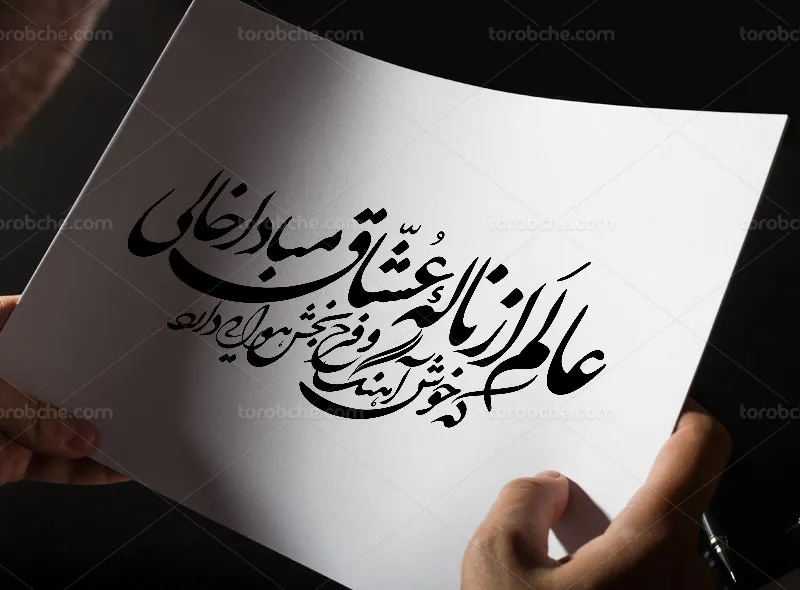 عالم از نالهٔ عُشّاق مبادا خالی
که خوش آهنگ و فرح بخش هوایی دارد
torobche.com torobche.com torobche.com torobche.com
torobche.com torobche.com torobche.com torobche.com
torobche.com torobche.com torobche.com torobche.com